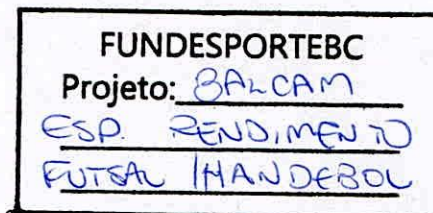 FUNDESPORTEBC
Projeto: BALCAM
ESP. RENDIMENTO
FUTSAL | HANDEBOL